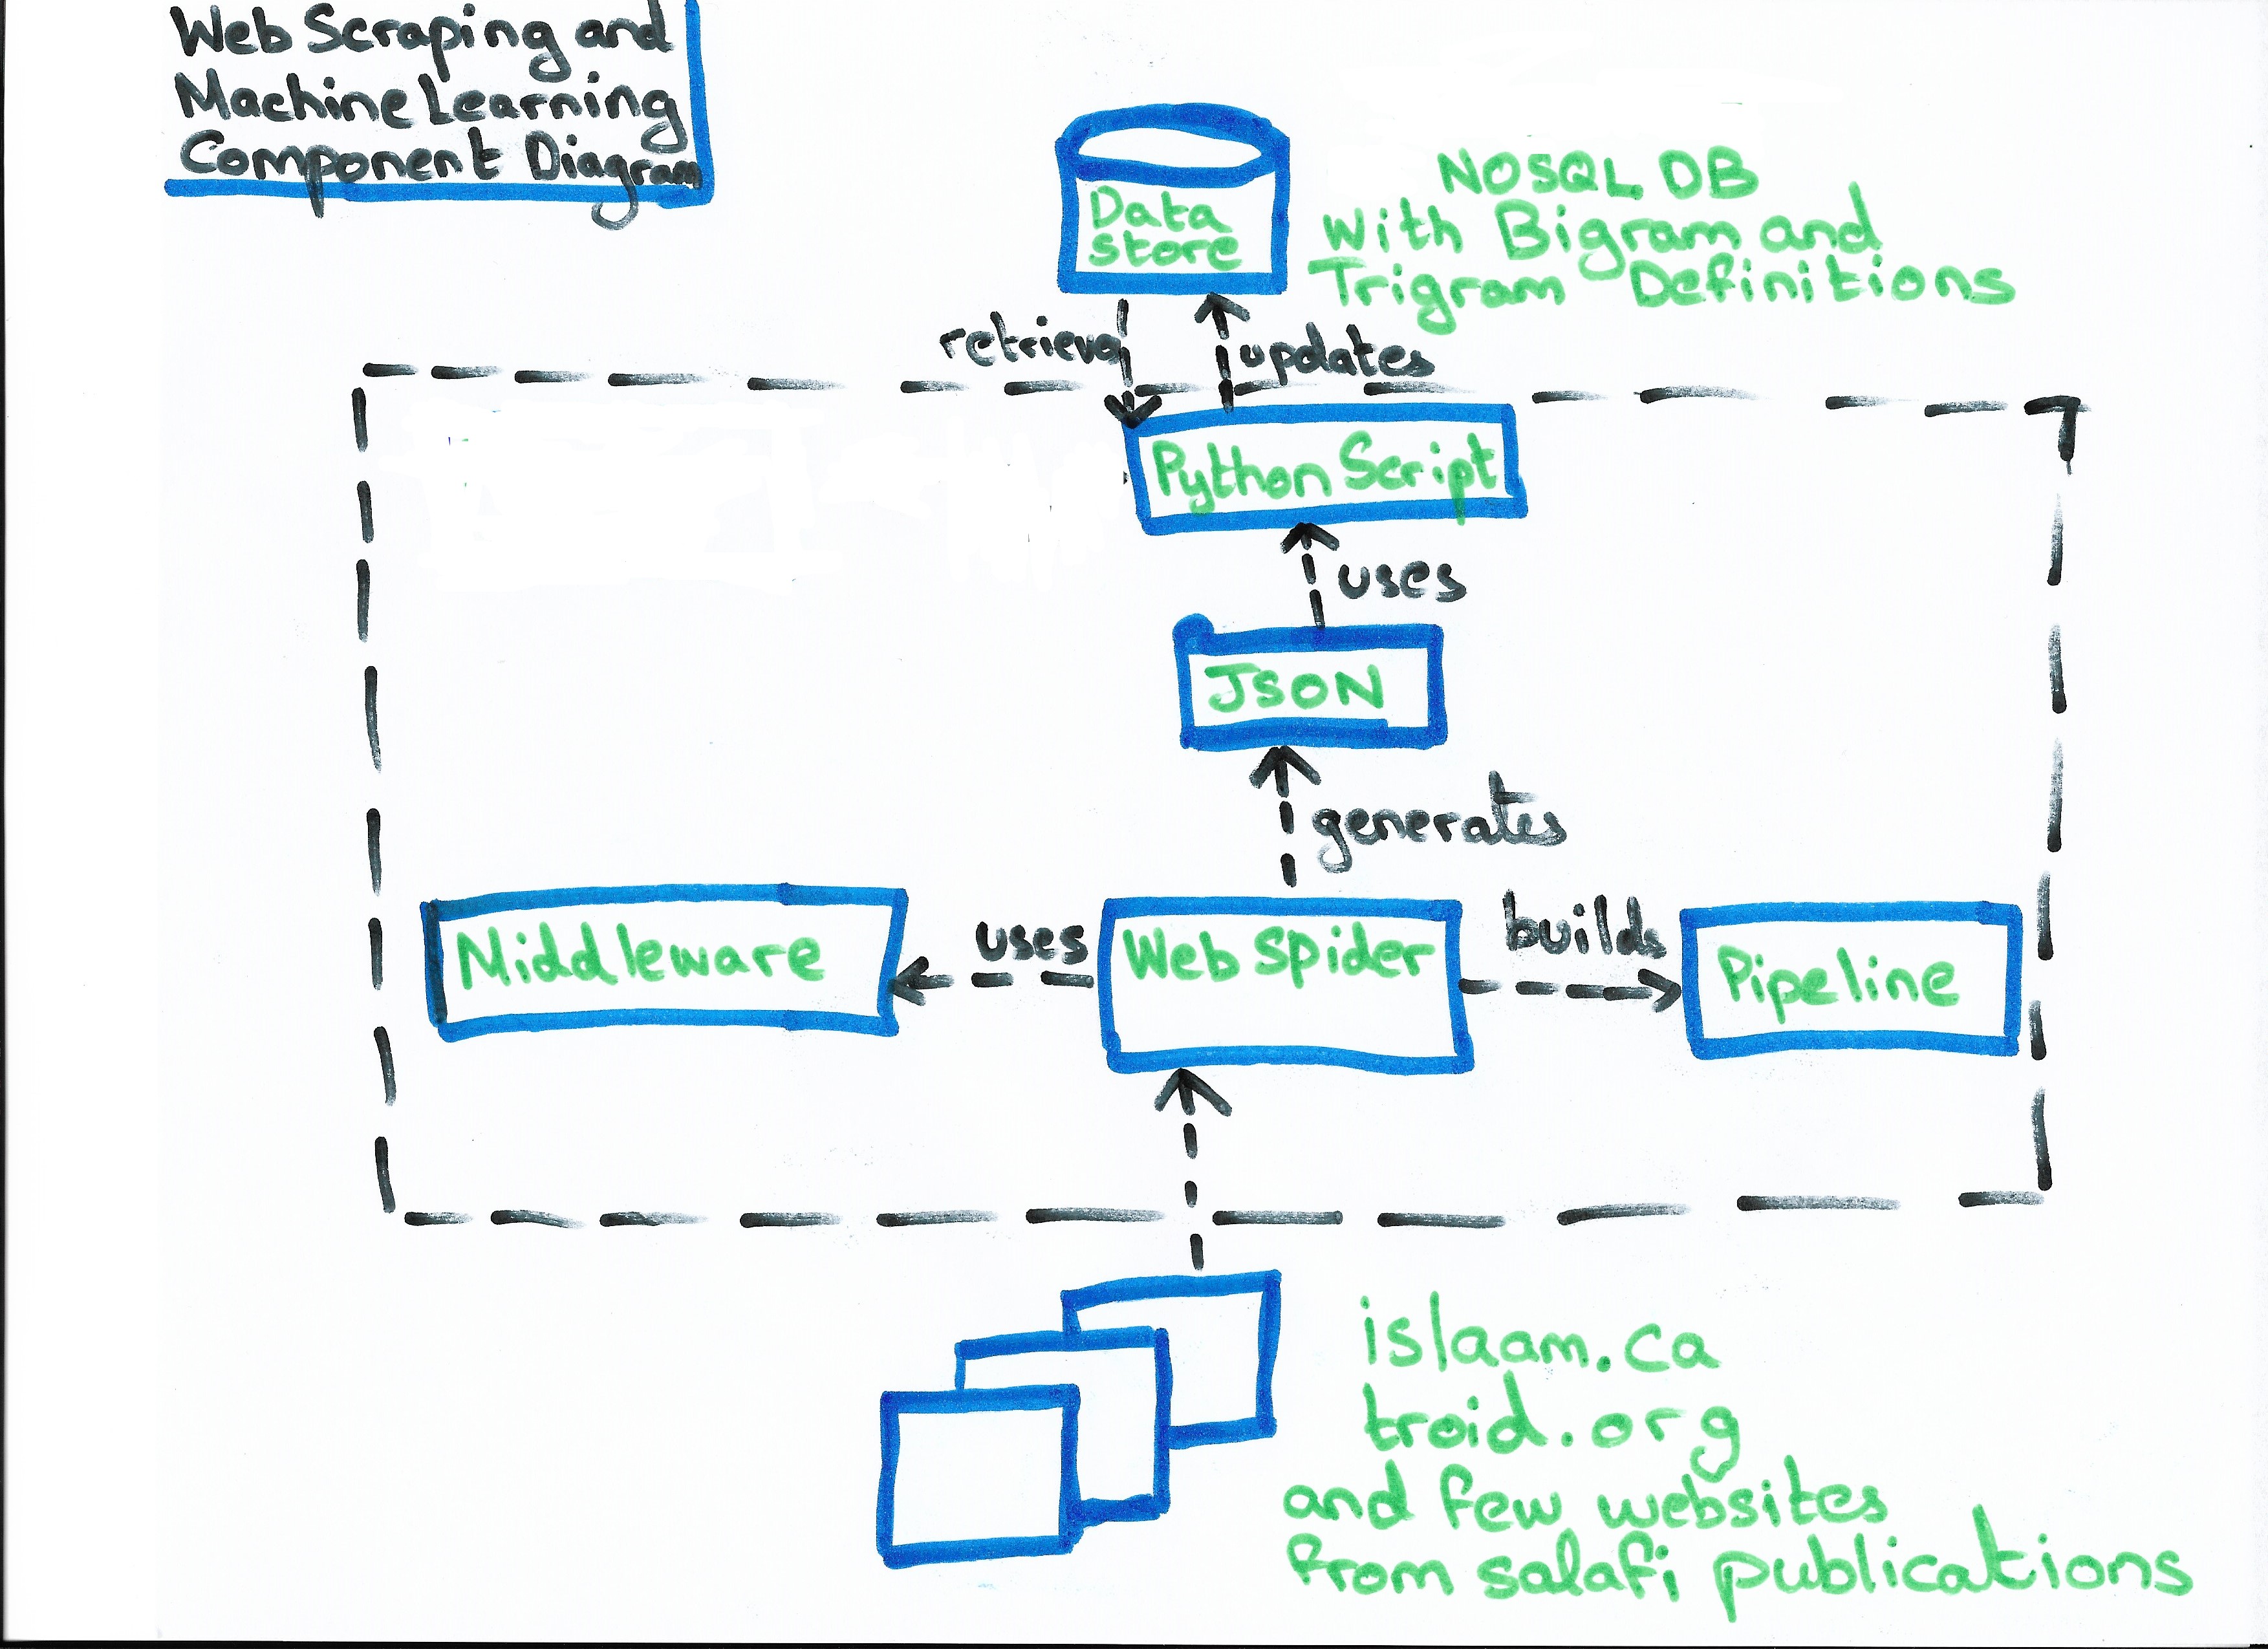 Web Scraping and
Machine Learning
Component Diagram
Data
store
NOSQL DB
with Bigram and
Trigram Definitions
retrieve
updates
Python Script
uses
JSON
generates
Middleware
uses
Web Spider
builds
Pipeline
islaam.ca
troid.org
and few websites
from salafi publications